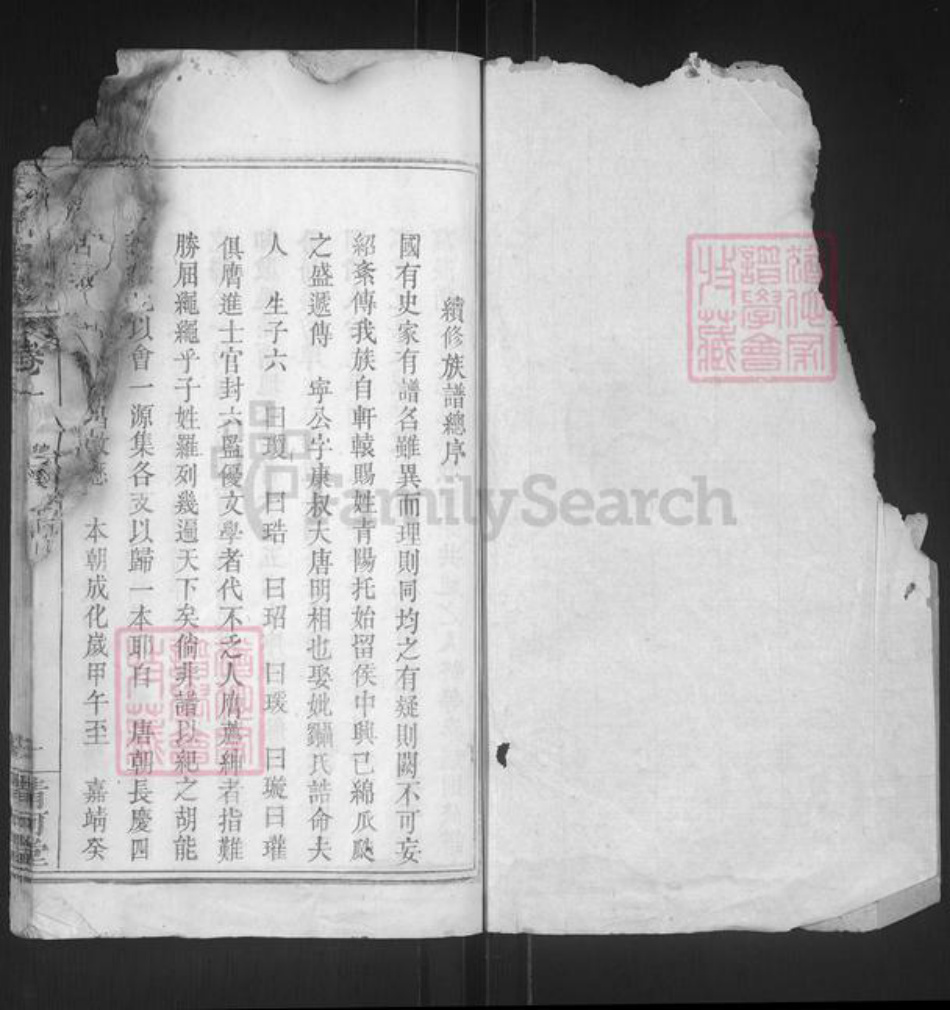 續修族譜總序
國有史家有譜名雖異而理則同均之有疑則闕不可妄
紹紊傳我族自軒轅賜姓青陽托始留侯中興已綿瓜瓞
之盛遞傳 寧公字康叔大唐明相也娶妣 氏誥命夫
人 生子六 曰瓊 曰珤 曰玿 曰瑗 曰璇曰瓘
俱膺進士官封六監優文學者代不乏人膺薦紳者指難
勝屈繩繩乎子姓羅列幾遍天下矣倘非譜以紀之胡能
以會一源集各支以歸一本耶自 唐朝長慶四
本朝成化歲甲午至 嘉靖癸
卷一
清河堂
FamilySearch